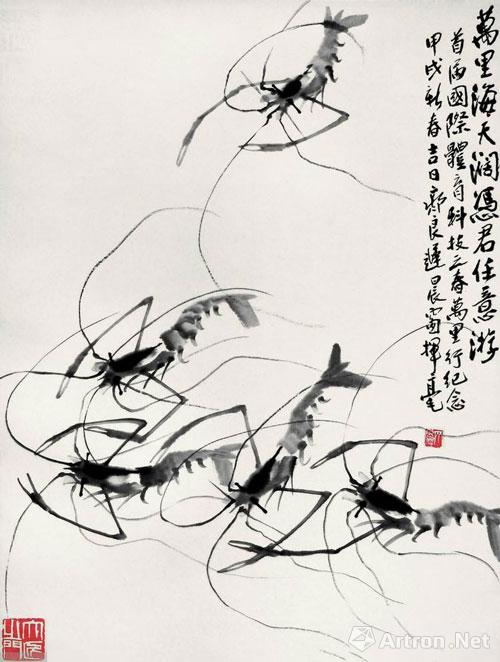 萬里海天濶憑君任意游
首届國際體育科技之春萬里行紀念
甲戌新春吉日齊良遲晨揮毫
大匠之門
Artron.Net